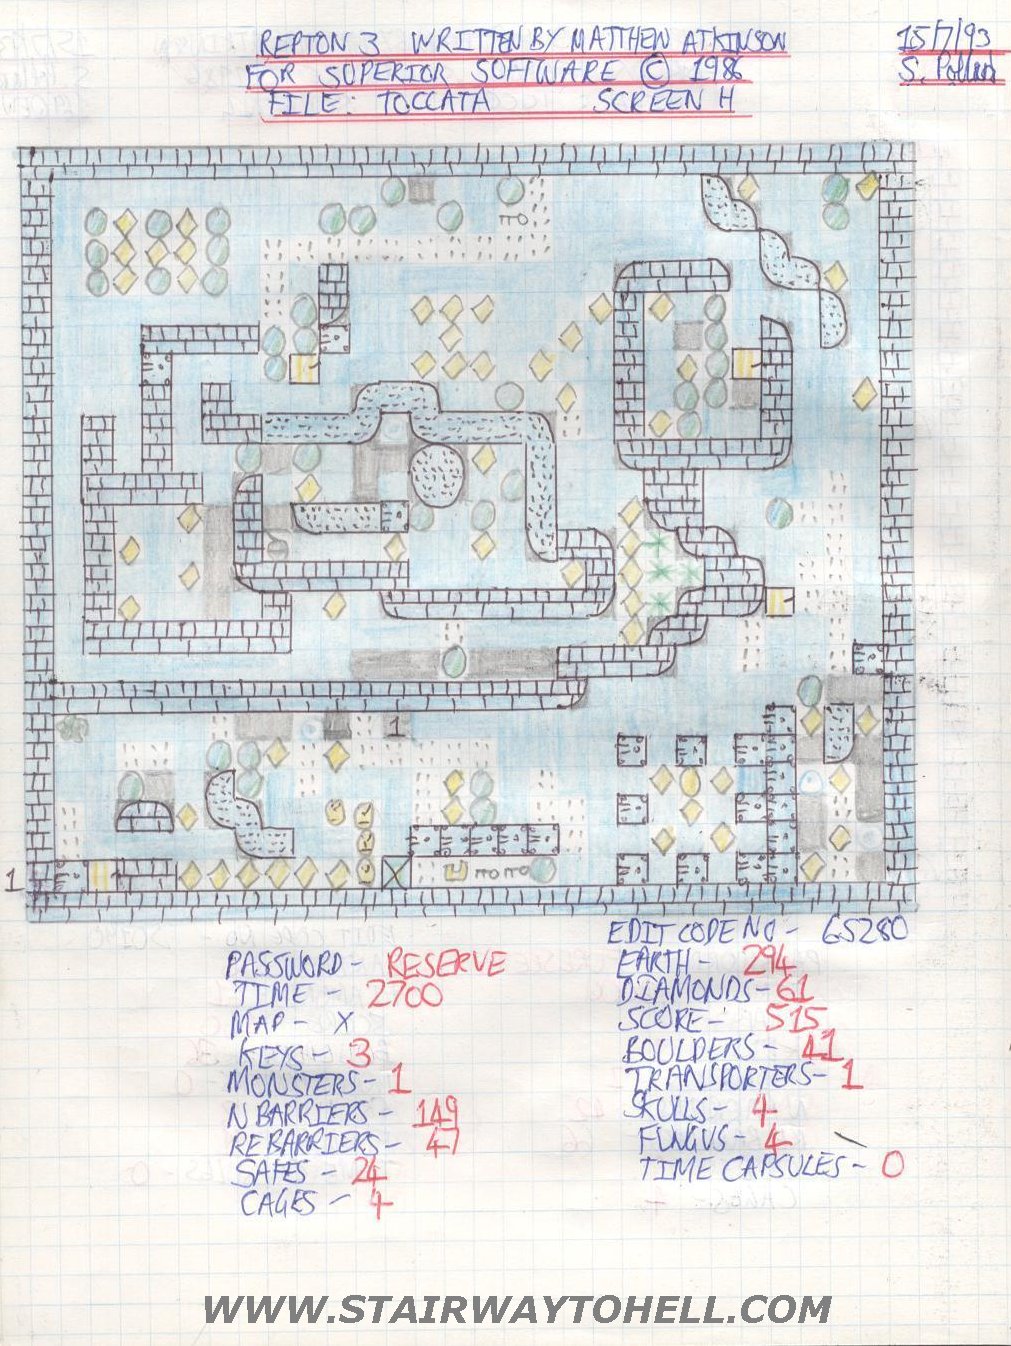 REPTON 3 WRITTEN BY MATTHEW ATKINSON
FOR SUPERIOR SOFTWARE © 1986
FILE: TOCCATA SCREEN H
15/7/93
S. Pollard
1
1
EDIT CODE NO - 65280
PASSWORD - RESERVE
TIME - 2700
MAP - X
KEYS - 3
MONSTERS - 1
N BARRIERS - 149
RE BARRIERS - 47
SAFES - 24
CAGES - 4
EARTH - 294
DIAMONDS - 61
SCORE - 515
BOULDERS - 41
TRANSPORTERS - 1
SKULLS - 4
FUNGUS - 4
TIME CAPSULES - 0
WWW.STAIRWAYTOHELL.COM